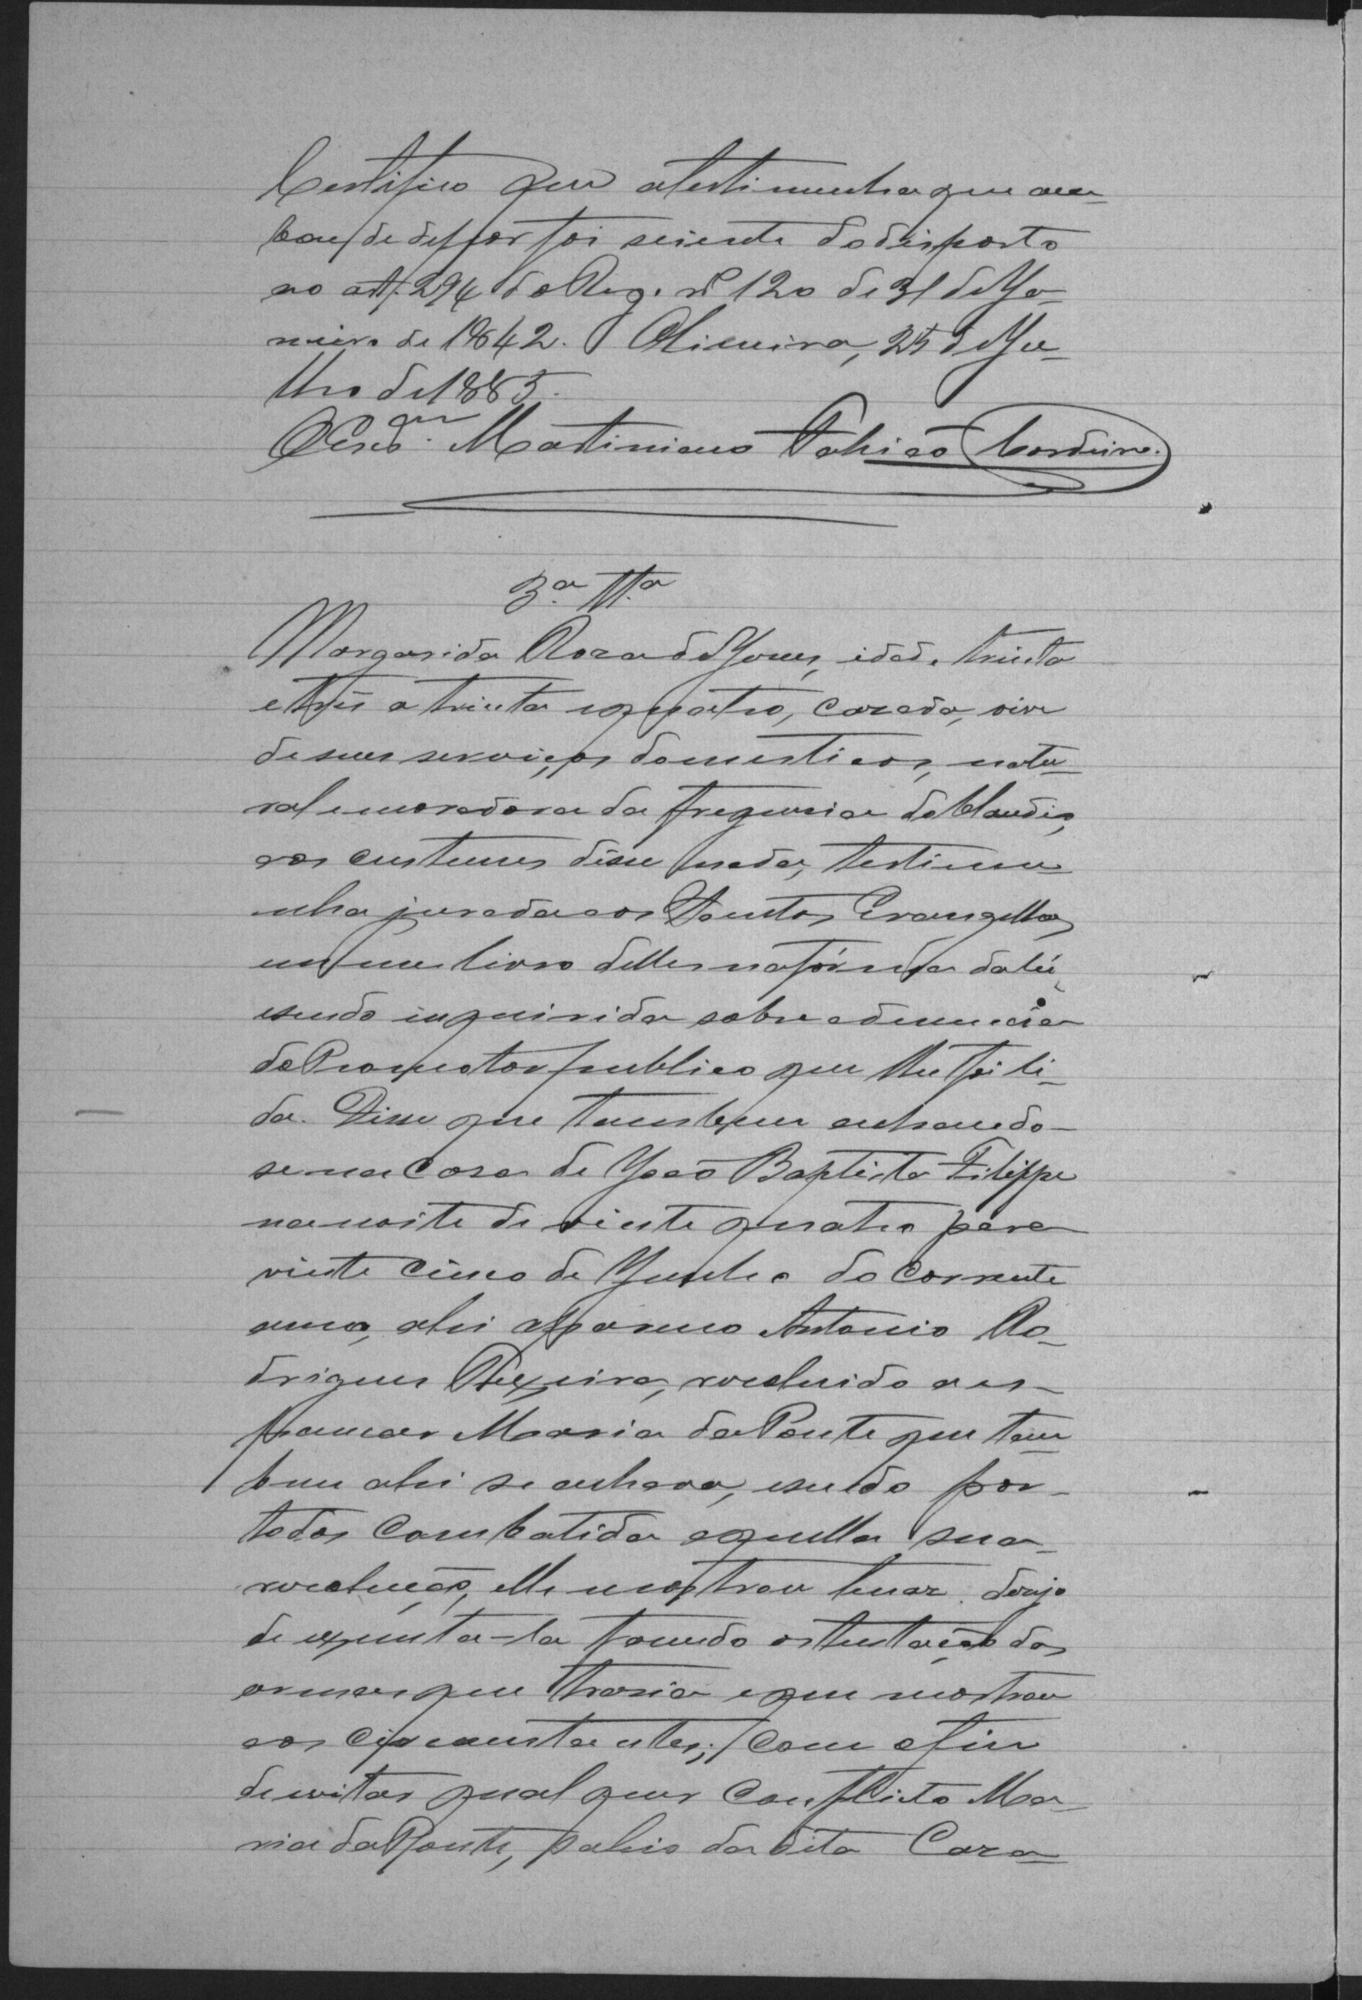 Certifico que atestimunha que aca-
bou de depor foi sciente do disposto
no art. 294 do Reg. nº 120 de 31 de Ja-
neiro de 1842. Oliveira, 25 de Ju-
lho de 1885.
O Escr.am Martiniano Cordeiro.
3.a Tt.a
Margarida Roza de Jesus, idade trinta
e tres a trinta equatro, cazada, vive
de seus serviços domesticos, natu-
ral emoradora da freguesia do Claudio,
aos custumes disse nada; testimu
nha jurada aos Santos Evangelhos
em um livro delles nafórma da lei,
esendo inquirida sobre adenuncia
do Promotor publico que lhe foi li-
da. Disse que tambem achando-
se na casa de João Baptista Filippe
na noite de vinte quatro para
vinte cinco de Junho do corrente
anno, ahi appareceo Antonio Ro-
drigues Teixeira, rezolvido a es-
pancar Maria da Ponte que tam
bem ahi se achava, esendo por-
todos combatida aquella sua
rezolução, elle mostrou tenaz dezejo
de expanta-la fazendo ostentação das
armas que trazia eque mostrou
aos circunstantes; com ofim
de evitar qual quer conflicto Ma-
ria da Ponte, sahio da dita Caza